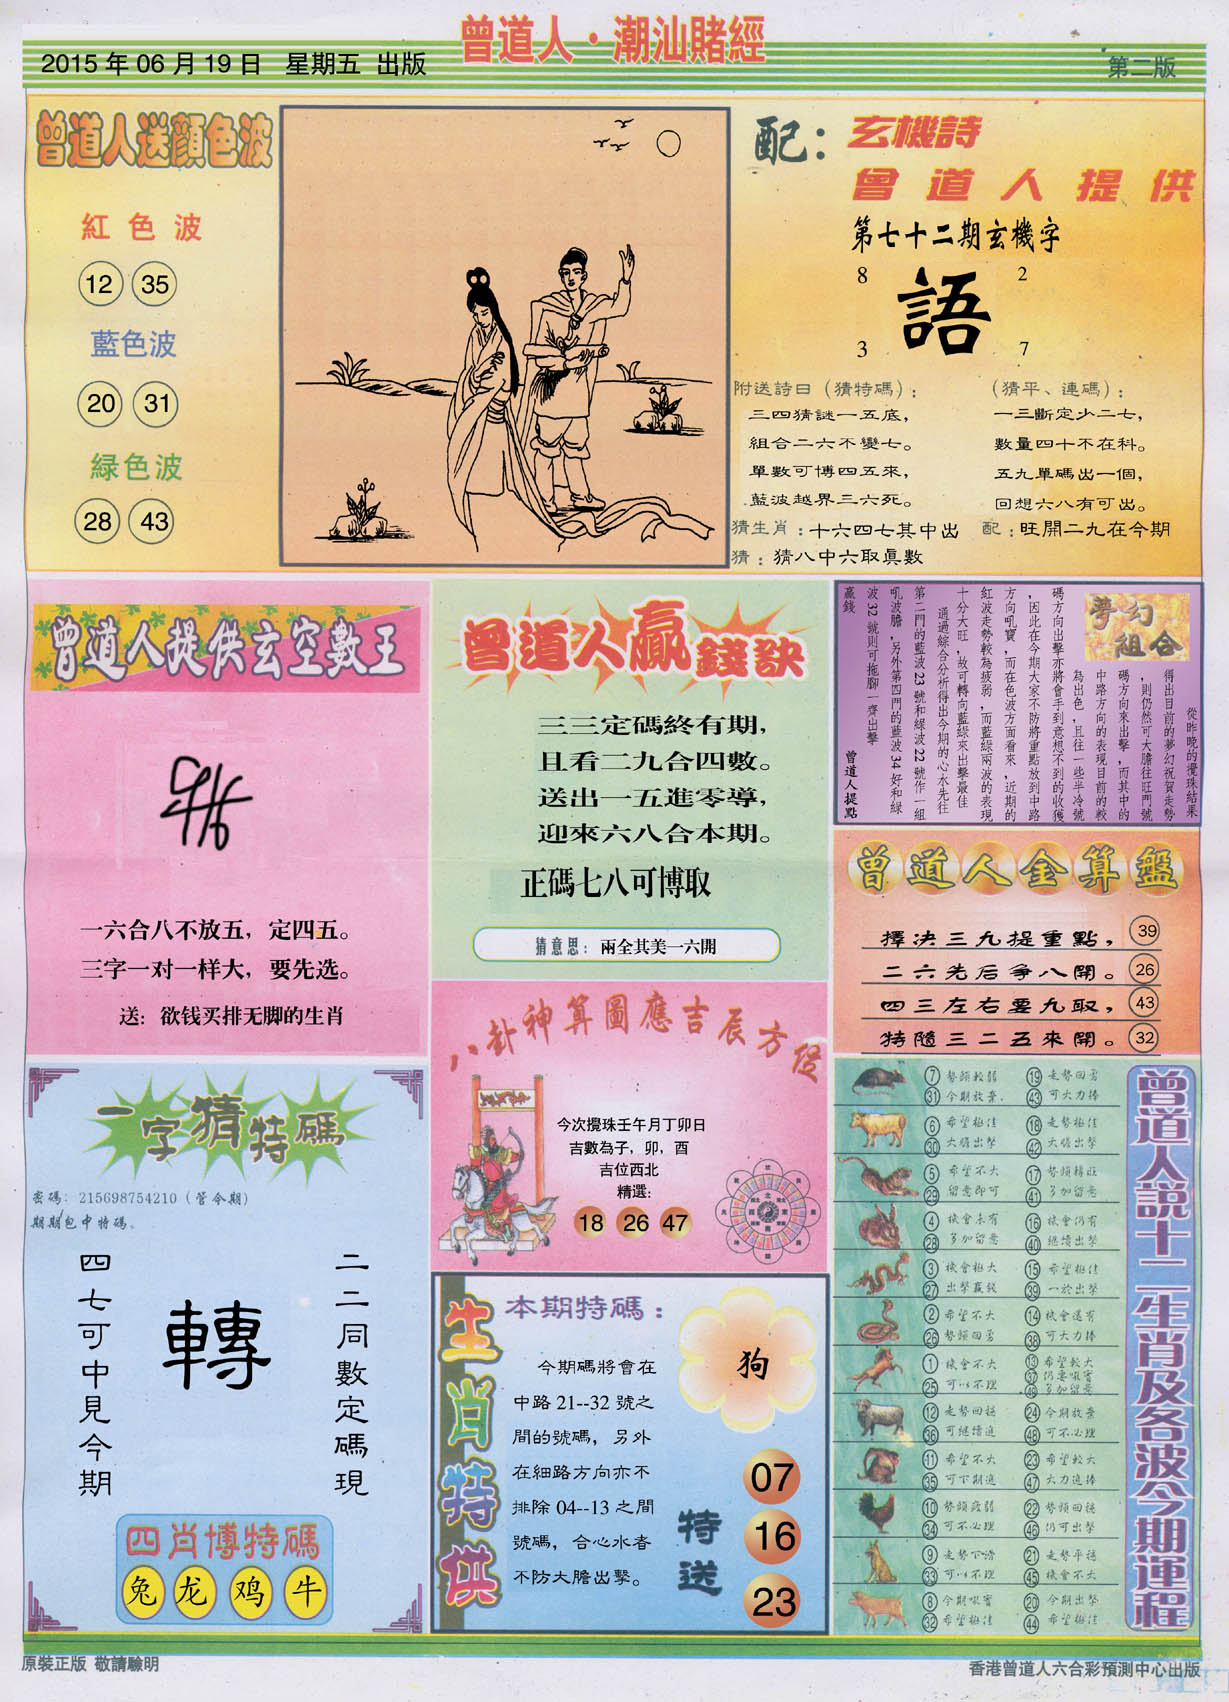 曾道人·潮汕賭經
2015 年 06 月 19 日 星期五 出版
第二版
曾道人送顔色波
紅色波
12 35
藍色波
20 31
緑色波
28 43
配：玄機詩
曾道人提供
第七十二期玄機字
8 2
語
3 7
附送詩曰（猜特碼）：
三四猜謎一五底，
組合二六不變七。
單數可博四五來，
藍波越界三六死。
猜生肖：十六四七其中出
猜：猜八中六取眞數
（猜平、連碼）：
一三斷定少二七，
數量四十不在科。
五九單碼出一個，
回想六八有可出。
配：旺開二九在今期
曾道人提供玄空數王
一六合八不放五，定四五。
三字一对一样大，要先选。
送：欲钱买排无脚的生肖
曾道人贏錢訣
三三定碼終有期，
且看二九合四數。
送出一五進零導，
迎來六八合本期。
正碼七八可博取
猜意思：兩全其美一六開
夢幻組合
從昨晚的攪珠結果
得出目前的夢幻祝賀走勢
，則仍然可大膽往旺門號
碼方向來出擊，而其中的
中路方向的表現目前的較
為出色，且往一些半冷號
碼方向出擊亦將會手到意想不到的收獲
，因此在今期大家不防將重點放到中路
方向吼寶，而在色波方面看來，近期的
紅波走勢較為疲弱，而藍綠兩波的表現
十分大旺，故可轉向藍綠來出擊最佳
通過綜合分析得出今期的心水先往
第二門的藍波 23 號和綠波 22 號作一組
吼波膽，另外第四門的藍波 34 好和綠
波 32 號則可拖腳一齊出擊
贏錢
曾道人提點
曾道人金算盤
擇決三九提重點， 39
二六先后爭八開。 26
四三左右要九取， 43
特隨三二五來開。 32
八卦神算圖應吉辰方位
今次攪珠壬午月丁卯日
吉數為子，卯，酉
吉位西北
精選：
18 26 47
一字猜特碼
密碼：215698754210（管今期）
期期包中特碼。
二二同數定碼現
轉
四七可中見今期
四肖博特碼
兔 龙 鸡 牛
生肖特供
本期特碼：
狗
今期碼將會在
中路 21--32 號之
間的號碼，另外
在細路方向亦不
排除 04--13 之間
號碼，合心水者
不防大膽出擊。
特送
07
16
23
曾道人說十二生肖及各波今期運程
7 勢頭較弱 19 走勢回勇
31 今期放棄 43 可大力捧
6 希望極佳 18 走勢極佳
30 大膽出擊 42 大膽出擊
5 希望不大 17 勢頭轉旺
29 留意即可 41 多加留意
4 機會未有 16 機會仍有
28 多加留意 40 繼續出擊
3 機會極大 15 希望極佳
27 出擊贏錢 39 一於出擊
2 希望不大 14 機會還有
26 勢頭回勇 38 可大力捧
1 機會不大 13 希望較大
25 可以不理 37 仍要吸寶
49 多加留意
12 走勢回穩 24 今期放棄
36 可繼續追 48 可不必理
11 希望不大 23 希望較大
35 可下期追 47 大力追捧
10 勢頭疲弱 22 勢頭回穩
34 可不必理 46 仍可出擊
9 走勢下滑 21 走勢平穩
33 可以不理 45 機會不大
8 今期吸寶 20 今期出擊
32 希望極佳 44 希望極佳
原裝正版 敬請驗明
香港曾道人六合彩預測中心出版